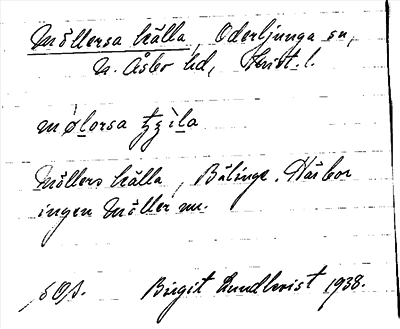 Möllersa källa, Oderljunga sn,
N. Åsbo hd, Krist. l.
mølorsa
Möllers källa, Bälinge. Här bor
ingen Möller nu.
Birgit Lundkvist 1938.